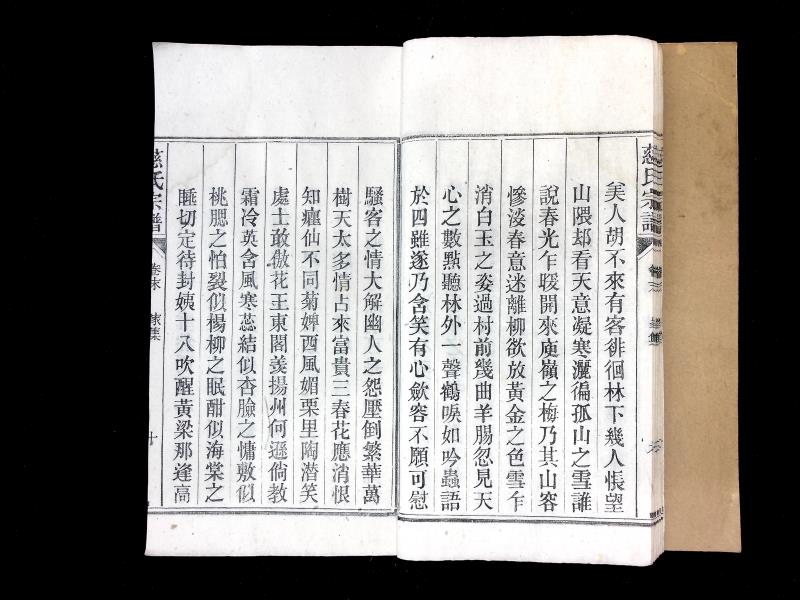 慈氏宗譜
美人胡不來有客徘徊林下幾人悵望
山隈却看天意凝寒灑徧孤山之雪誰
說春光乍暖開來庾嶺之梅乃其山容
慘淡春意迷離柳欲放黃金之色雪乍
消白玉之姿過村前幾曲羊腸忽見天
心之數點聽林外一聲鶴唳如吟蟲語
於四雖遂乃含笑有心歛容不願可慰
騷客之情大解幽人之怨壓倒繁華萬
樹天太多情占來富貴三春花應消恨
知癯仙不同菊婢西風媚栗里陶潛笑
處士敢傲花王東閣羨揚州何遜倘教
霜冷英含風寒蕊結似杏臉之慵敷似
桃腮之怕裂似楊柳之眠酣似海棠之
睡切定待封姨十八吹醒黃梁那逢高
慈氏宗譜
卷末
十